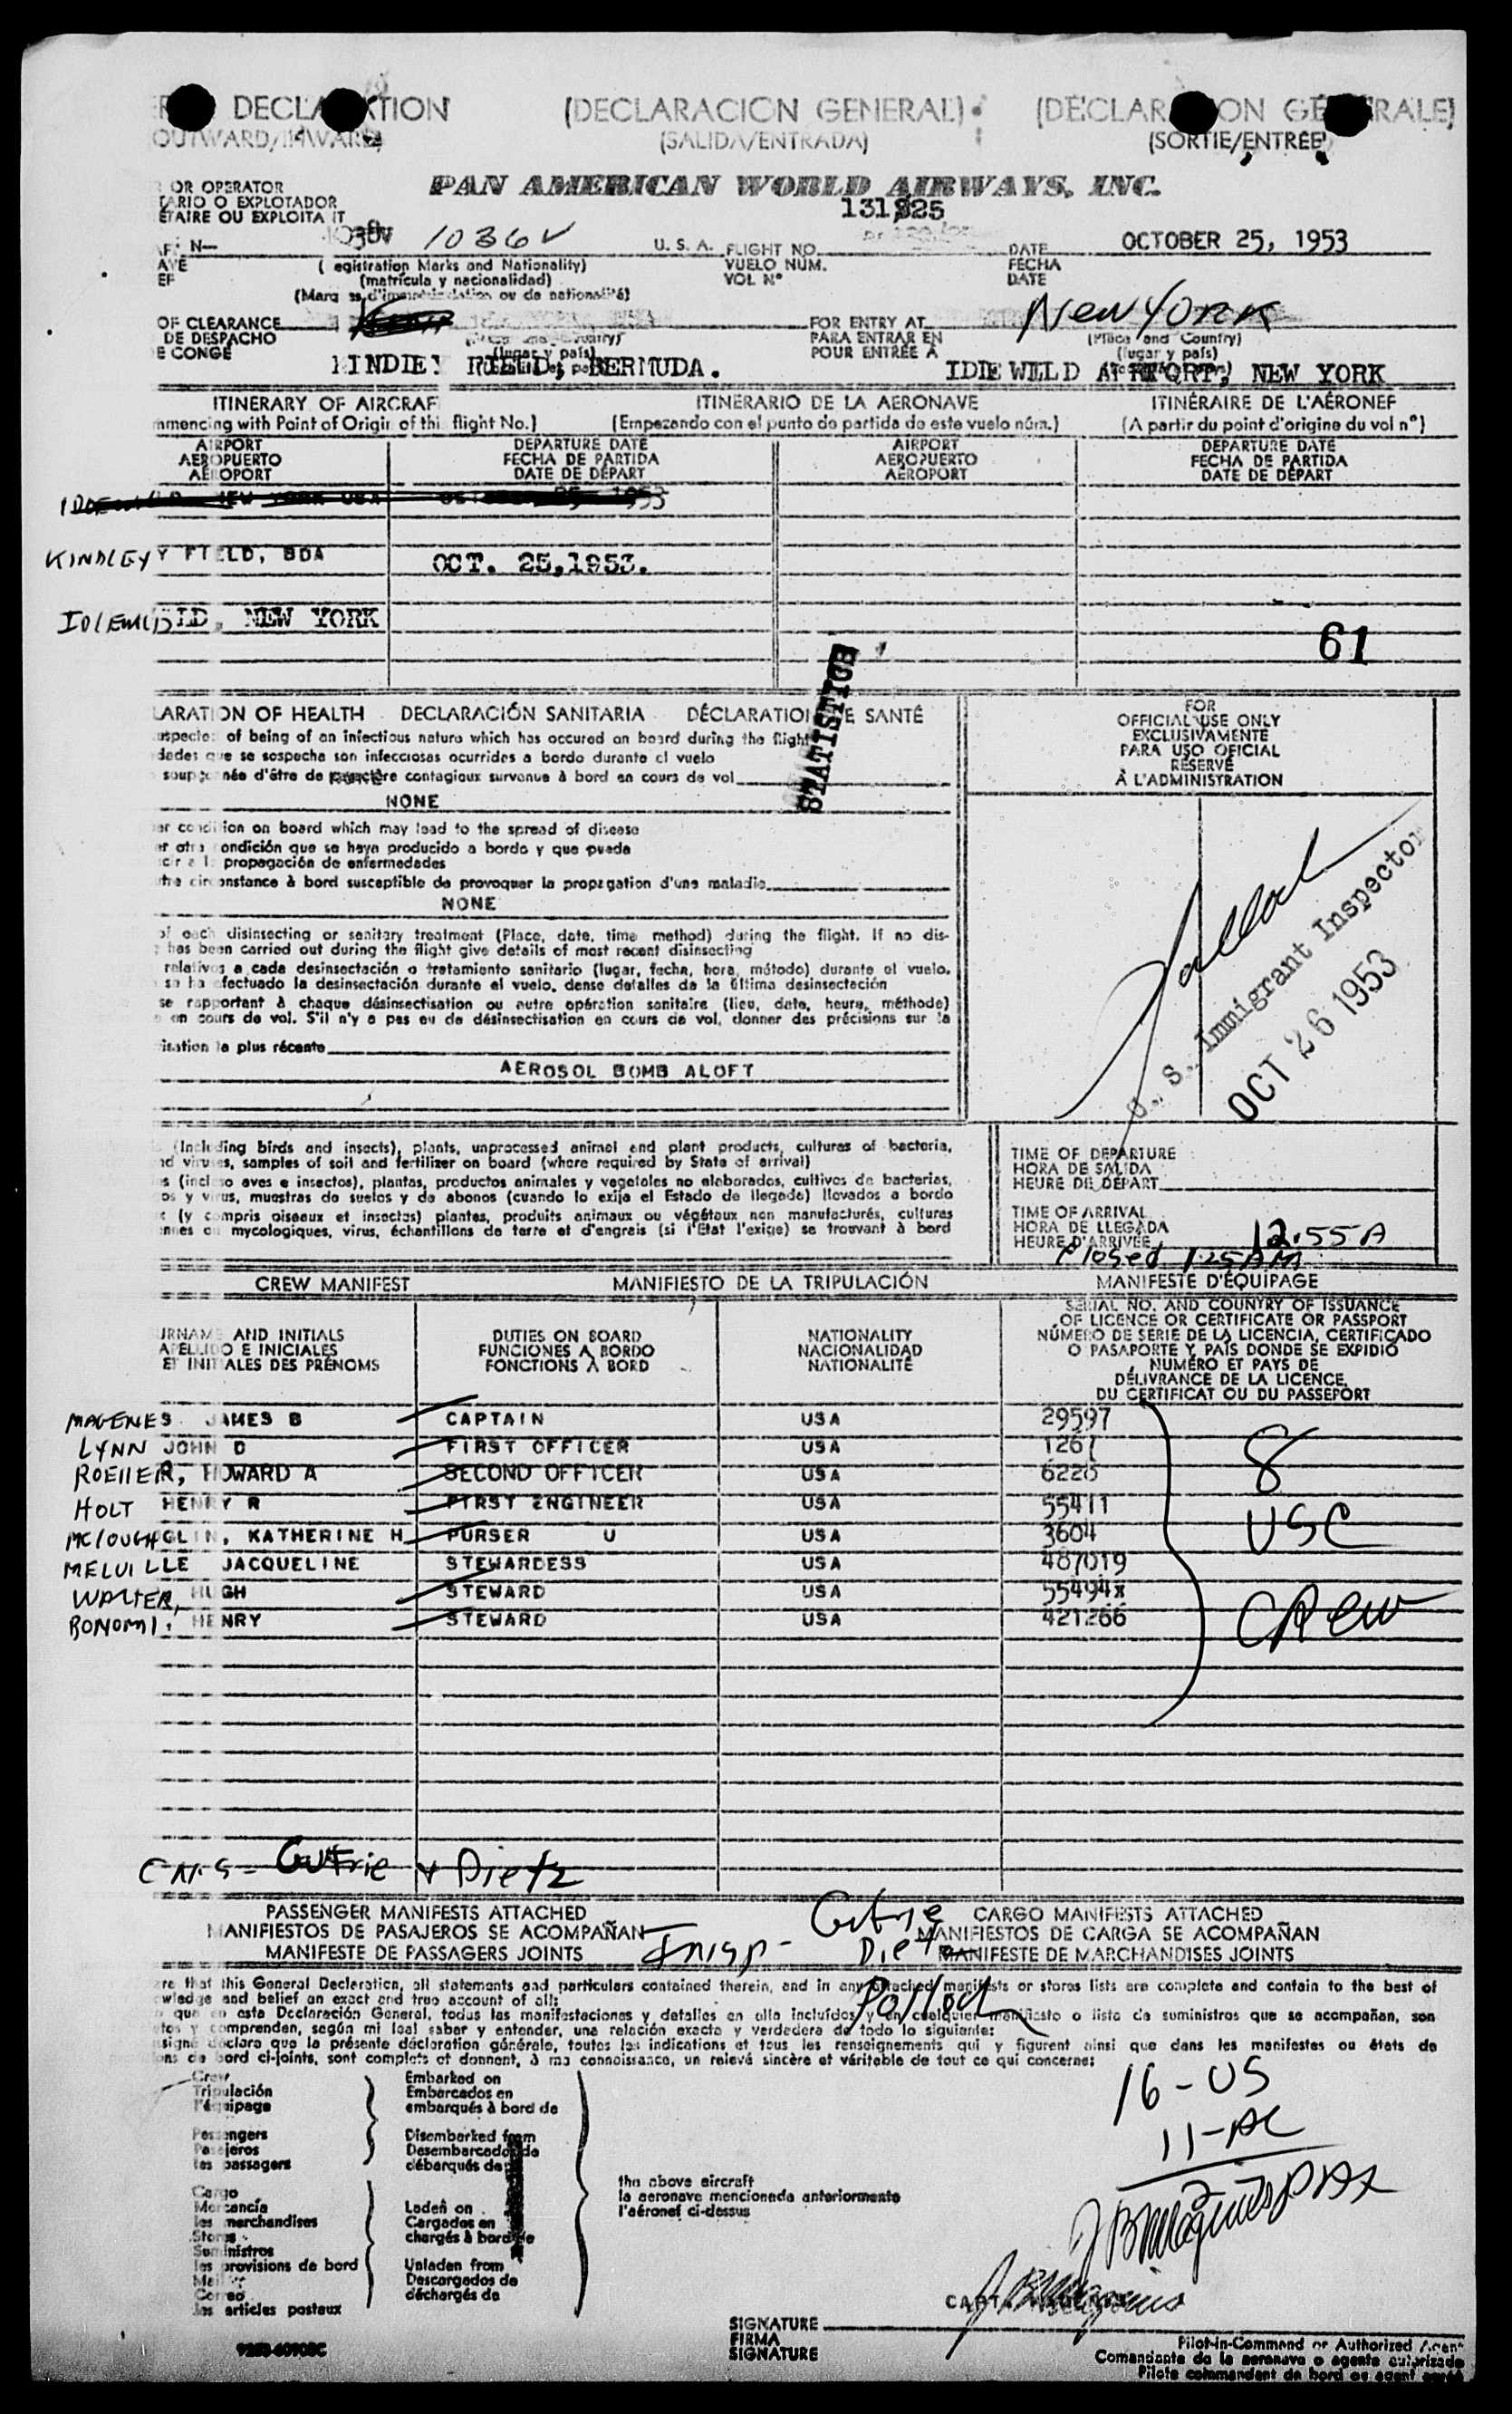 DECLARATION (DECLARACION GENERAL) (DECLARATION GÉNÉRALE)
OUTWARD/INWARD) (SALIDA/ENTRADA) (SORTIE/ENTRÉE)
OR OPERATOR
TARIO O EXPLOTADOR
ÉTAIRE OU EXPLOITANT
PAN AMERICAN WORLD AIRWAYS, INC.
131/825
N- 1036V U. S. A. FLIGHT NO. DATE OCTOBER 25, 1953
(Registration Marks and Nationality) VUELO NUM. FECHA
(matrícula y nacionalidad) VOL Nº DATE
(Marques d'immatriculation ou de nationalité)
OF CLEARANCE FOR ENTRY AT New York
DE DESPACHO PARA ENTRAR EN (Place and Country)
E CONGÉ (lugar y país) POUR ENTRÉE A (lugar y país)
KINDLEY FIELD, BERMUDA. IDLEWILD AIRPORT, NEW YORK
ITINERARY OF AIRCRAFT ITINERARIO DE LA AERONAVE ITINÉRAIRE DE L'AÉRONEF
mmencing with Point of Origin of this flight No.) (Empezando con el punto de partida de este vuelo núm.) (A partir du point d'origine du vol nº)
AIRPORT DEPARTURE DATE AIRPORT DEPARTURE DATE
AEROPUERTO FECHA DE PARTIDA AEROPUERTO FECHA DE PARTIDA
AÉROPORT DATE DE DÉPART AÉROPORT DATE DE DÉPART
IDLEWILD NEW YORK USA OCTOBER 25 1953
KINDLEY Y FIELD, BDA OCT. 25,1953.
IDLEWILD, NEW YORK
61
STATISTICS
LARATION OF HEALTH DECLARACIÓN SANITARIA DÉCLARATION DE SANTÉ
uspected of being of an infectious nature which has occured on board during the flight
dades que se sospecha son infecciosas ocurridas a bordo durante el vuelo
soupçonnée d'être de caractère contagieux survenue à bord en cours de vol
NONE
FOR
OFFICIAL USE ONLY
EXCLUSIVAMENTE
PARA USO OFICIAL
RÉSERVÉ
À L'ADMINISTRATION
er condition on board which may lead to the spread of disease
er otra condición que se haya producido a bordo y que pueda
cir a la propagación de enfermedades
utre circonstance à bord susceptible de provoquer la propagation d'une maladie
NONE
of each disinsecting or sanitary treatment (Place, date, time method) during the flight. If no dis-
has been carried out during the flight give details of most recent disinsecting
relativos a cada desinsectación o tratamiento sanitario (lugar, fecha, hora, método) durante el vuelo.
se ha efectuado la desinsectación durante el vuelo, dense detalles de la última desinsectación
se rapportant à chaque désinsectisation ou autre opération sanitaire (lieu, date, heure, méthode)
en cours de vol. S'il n'y a pas eu de désinsectisation en cours de vol, donner des précisions sur la
isation la plus récente
AEROSOL BOMB ALOFT
U. S. Immigrant Inspector
OCT 26 1953
(Including birds and insects), plants, unprocessed animal and plant products, cultures of bacteria,
nd viruses, samples of soil and fertilizer on board (where required by State of arrival)
s (incluso aves e insectos), plantas, productos animales y vegetales no elaborados, cultivos de bacterias,
os y virus, muestras de suelos y de abonos (cuando lo exija el Estado de llegada) llevados a bordo
x (y compris oiseaux et insectes) plantes, produits animaux ou végétaux non manufacturés, cultures
ennes ou mycologiques, virus, échantillons de terre et d'engrais (si l'Etat l'exige) se trouvant à bord
TIME OF DEPARTURE
HORA DE SALIDA
HEURE DE DÉPART
TIME OF ARRIVAL
HORA DE LLEGADA
HEURE D'ARRIVÉE 12.55A
Closed 1 25 AM
CREW MANIFEST MANIFIESTO DE LA TRIPULACIÓN MANIFESTE D'ÉQUIPAGE
URNAME AND INITIALS
APELLIDO E INICIALES
ET INITIALES DES PRÉNOMS
DUTIES ON BOARD
FUNCIONES A BORDO
FONCTIONS À BORD
NATIONALITY
NACIONALIDAD
NATIONALITÉ
SERIAL NO. AND COUNTRY OF ISSUANCE
OF LICENCE OR CERTIFICATE OR PASSPORT
NÚMERO DE SERIE DE LA LICENCIA, CERTIFICADO
O PASAPORTE Y PAÍS DONDE SE EXPIDIÓ
NUMÉRO ET PAYS DE
DÉLIVRANCE DE LA LICENCE,
DU CERTIFICAT OU DU PASSEPORT
MAGENES JAMES B CAPTAIN USA 29597
LYNN JOHN D FIRST OFFICER USA 1267
ROEHER, HOWARD A SECOND OFFICER USA 6228
HOLT HENRY R FIRST ENGINEER USA 55411
MCLOUGHGLIN, KATHERINE H PURSER U USA 3604
MELVILLE JACQUELINE STEWARDESS USA 487019
WALTER, HUGH STEWARD USA 55494x
BONOMI, HENRY STEWARD USA 421266
8
USC
CREW
Gutrie & Dietz
PASSENGER MANIFESTS ATTACHED CARGO MANIFESTS ATTACHED
MANIFIESTOS DE PASAJEROS SE ACOMPAÑAN MANIFIESTOS DE CARGA SE ACOMPAÑAN
MANIFESTE DE PASSAGERS JOINTS MANIFESTE DE MARCHANDISES JOINTS
Insp- Gutrie
Dietz
Pollock
are that this General Declaration, all statements and particulars contained therein, and in any attached manifests or stores lists are complete and contain to the best of
wledge and belief an exact and true account of all:
que en esta Declaración General, todas las manifestaciones y detalles en ella incluídos y en cualquier manifiesto o lista de suministros que se acompañan, son
etos y comprenden, según mi leal saber y entender, una relación exacta y verdadera de todo lo siguiente:
signé déclare que la présente déclaration générale, toutes les indications et tous les renseignements qui y figurent ainsi que dans les manifestes ou états de
ons de bord ci-joints, sont complets et donnent, à ma connaissance, un relevé sincère et véritable de tout ce qui concerne:
Crew
Tripulación
l'équipage
Passengers
Pasajeros
les passagers
Cargo
Mercancía
les marchandises
Stores
Suministros
les provisions de bord
Mail
Correo
les articles postaux
Embarked on
Embarcados en
embarqués à bord de
Disembarked from
Desembarcados de
débarqués de
Laden on
Cargados en
chargés à bord de
Unladen from
Descargados de
déchargés de
the above aircraft
la aeronave mencionada anteriormente
l'aéronef ci-dessus
16-US
11-AL
CAPT.
SIGNATURE
FIRMA
SIGNATURE
Pilot-in-Command or Authorized Agent
Comandante de la aeronave o agente autorizado
Pilote commandant de bord ou agent agréé